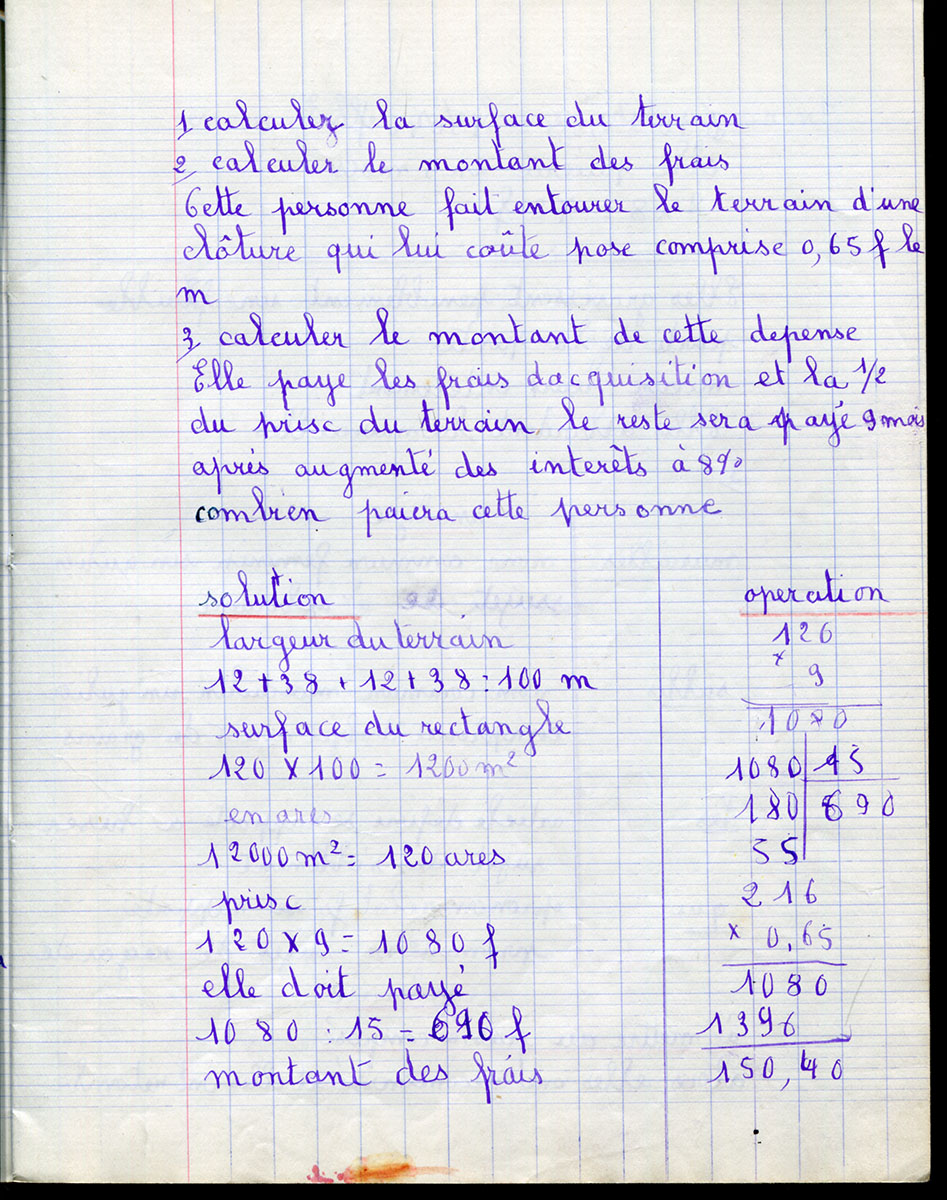 1 calculer la surface du terrain
2 calculer le montant des frais
Cette personne fait entourer le terrain d'une
clôture qui lui coûte pose comprise 0,65 f le
m
3 calculer le montant de cette depense
Elle paye les frais dacquisition et la 1/2
du prisc du terrain le reste sera payé 9 mois
aprés augmenté des interêts à 8%
combien paiera cette personne
solution
largeur du terrain
12 + 38 + 12 + 38 = 100 m
surface du rectangle
120 x 100 = 1200 m²
en ares
12000 m² = 120 ares
prisc
120 x 9 = 1080 f
elle doit payé
1080 : 15 = 690 f
montant des frais
operation
126
x 9
1080
1080 15
180 690
55
216
x 0,65
1080
1396
150,40